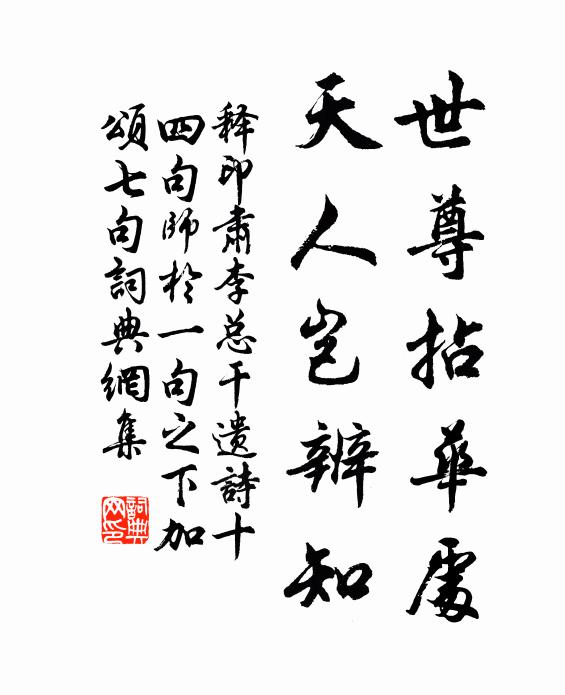 世尊拈華處
天人豈辨知
释印肅李总干遺詩十
四句師於一句之下加
頌七句詞典網集
詞典网印